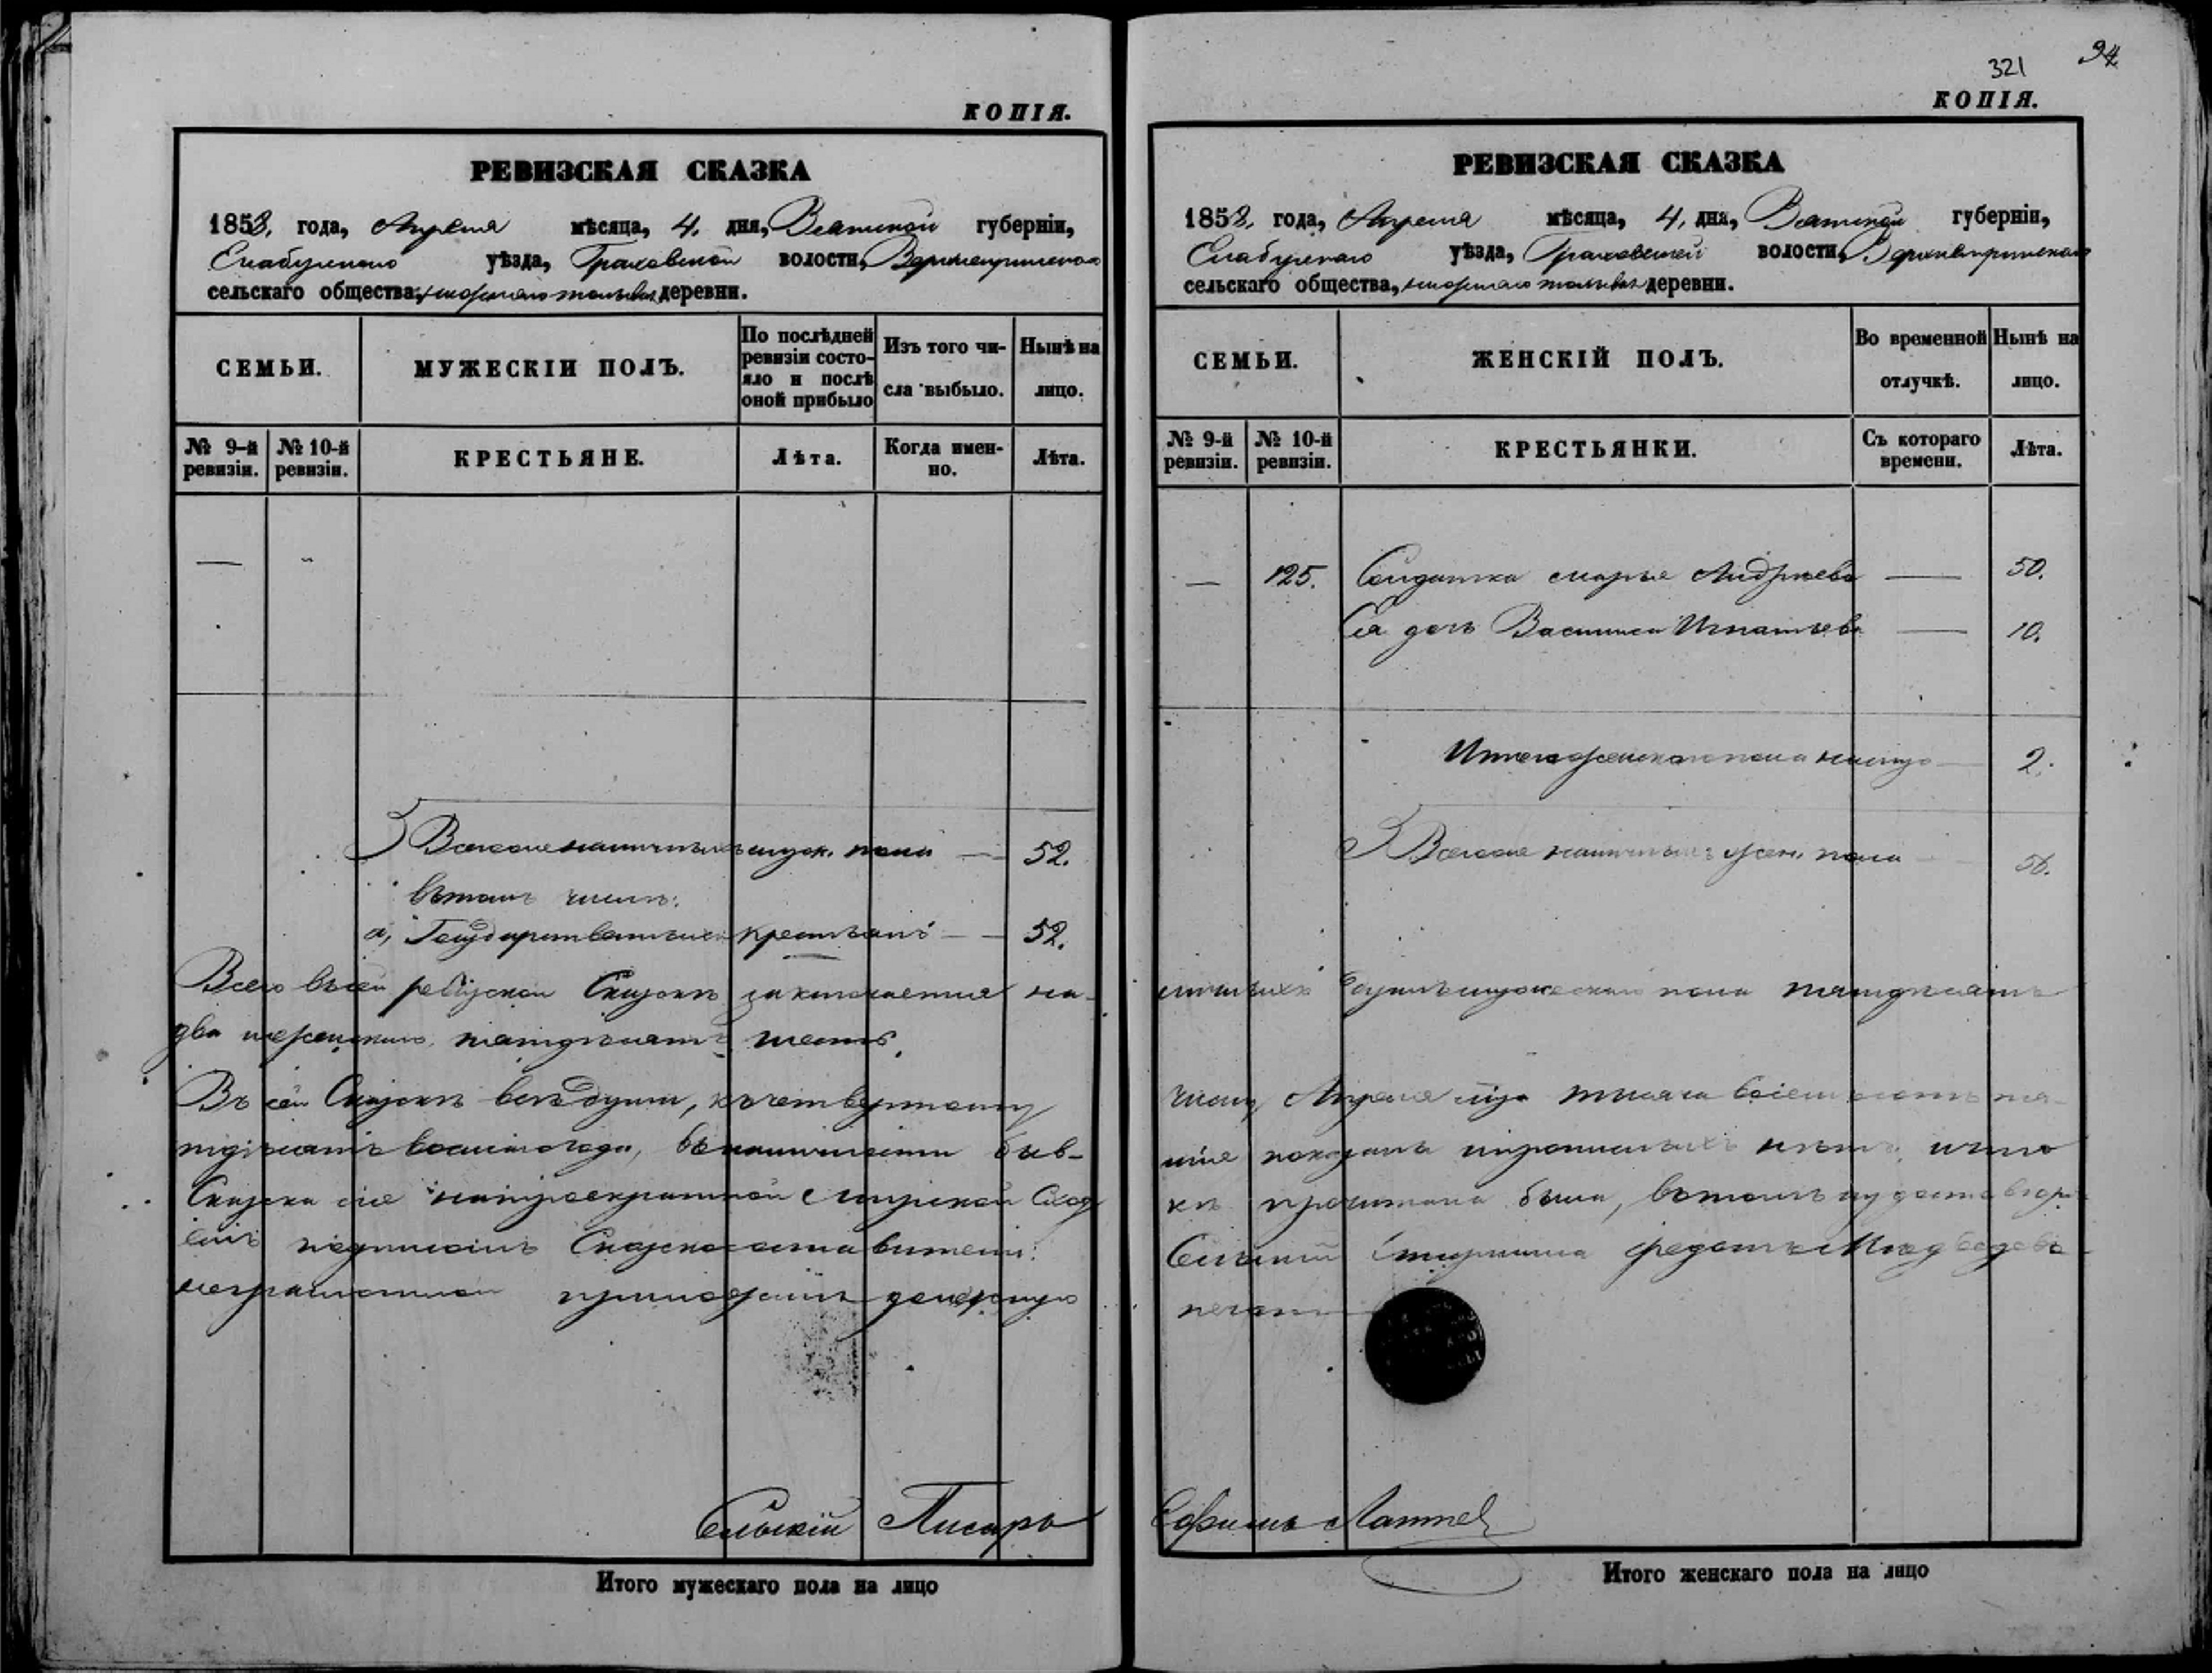 КОПІЯ.
РЕВИЗСКАЯ СКАЗКА
1858, года, Апреля мѣсяца, 4, дня, Вятской губерніи,
Елабужского уѣзда, Граховской волости,
сельскаго общества, деревни.
СЕМЬИ.
МУЖЕСКІЙ ПОЛЪ.
По послѣдней ревизіи состояло и послѣ оной прибыло
Изъ того числа выбыло.
Нынѣ на лицо.
№ 9-й ревизіи.
№ 10-й ревизіи.
КРЕСТЬЯНЕ.
Лѣта.
Когда именно.
Лѣта.
Всего наличныхъ муж. пола — 52.
Въ томъ числѣ:
а, Государственныхъ крестьянъ — 52.
Всего в сей ревизской Сказкѣ заключается на-
два женскаго пятдесятъ шесть,
Въ сей Сказкѣ все души, къ четвертому
пятдесятъ восьмого года, в наличности быв-
Сказка сія на мирской Сход
подписомъ
неграмотной приложилъ должную
Сельскій Писарь
Итого мужескаго пола на лицо
321
94
КОПІЯ.
РЕВИЗСКАЯ СКАЗКА
1858, года, Апреля мѣсяца, 4, дна, Вятской губерніи,
Елабужского уѣзда, Граховской волости,
сельскаго общества, деревни.
СЕМЬИ.
ЖЕНСКІЙ ПОЛЪ.
Во временной отлучкѣ.
Нынѣ на лицо.
№ 9-й ревизіи.
№ 10-й ревизіи.
КРЕСТЬЯНКИ.
Съ котораго времени.
Лѣта.
— 125. Солдатка Марья Андреева — 50.
Ея дочь Василиса Игнатьева — 10.
Итого женскаго пола налицо — 2.
Всего наличныхъ жен. пола 56.
личныхъ душъ мужескаго пола пятдесятъ
числу Апреля сего тысяча восемьсотъ пя-
шіе показаны прописныхъ нетъ, и что
прочитана была, в томъ удостовер
Сельский Старшина Федотъ Медведевъ
печать
Лаптев
Итого женскаго пола на лицо